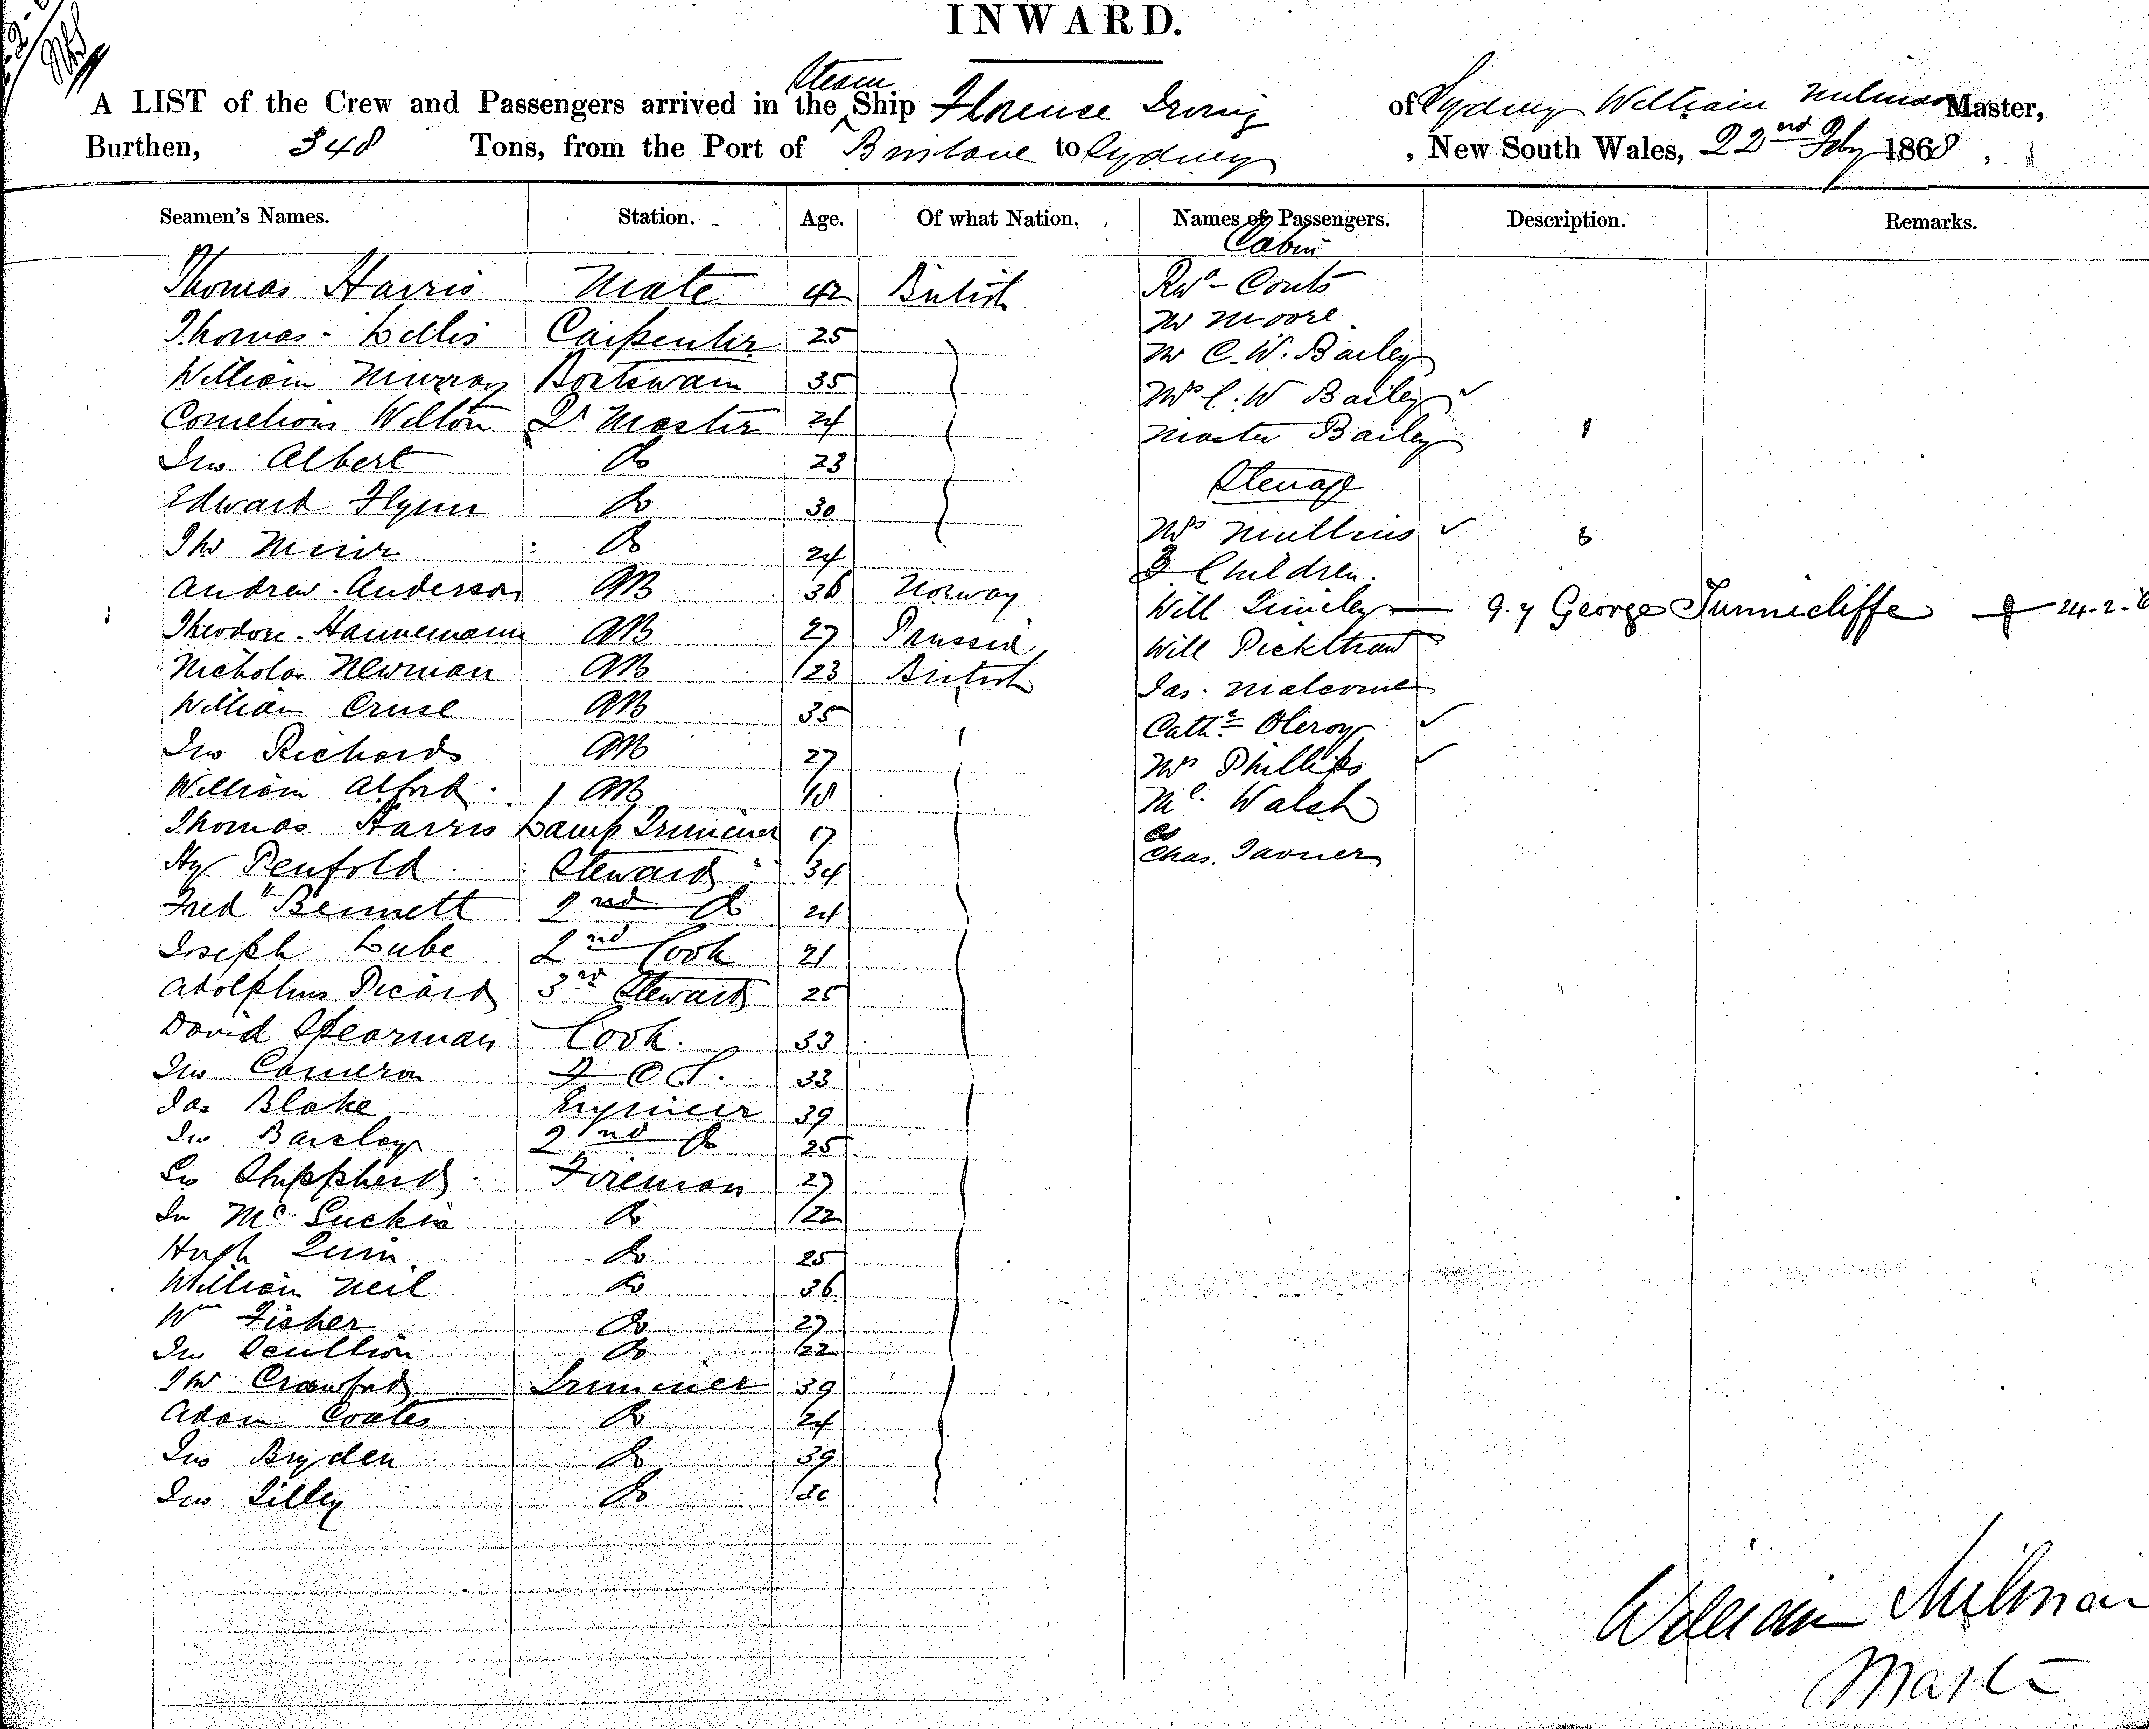 INWARD.
A LIST of the Crew and Passengers arrived in the Steam Ship Florence Irving of Sydney William Milman Master,
Burthen, 348 Tons, from the Port of Brisbane to Sydney, New South Wales, 22nd Feby 1868
Seamen's Names. Station. Age. Of what Nation. Names of Passengers. Description. Remarks.
Cabin
Thomas Harris Mate 42 British Revd Couts
Mr Moore
Thomas Lellis Carpenter 25 Mr C. W. Bailey
William Murray Boatswain 35 Mrs C. W Bailey
Cornelious Wilton Qr Master 24 Master Bailey 1
Jno Albert Do 23
Steerage
Edward Flynn Do 30 Mrs Mullins 3
Thos Do 24 3 Children.
Andrew Anderson AB 36 Norway Will Q.y George Tunnicliffe 24.2.6
Theodore Hannemann AB 27 Prussia Will
Nicholas Newman AB 23 British Jas. Malcome
William Cruse AB 35 Cathe
Jno Richards AB 27 Mrs Phillips
William Alford AB 40 Mc. Walsh
Thomas Harris Lamp Trimmer 17
Chas. Tavner
Hy Penfold Steward 34
Fred Bennett 2nd Do 24
Joseph Lube 2nd Cook 21
Adolphus Picard 3rd Steward 25
David Spearman Cook. 33
Jno Cameron 33
Jas Blake Engineer 39
Jno Barclay 2nd Do 25
Shuppherd Fireman 27
Jn McLuckie Do 22
Hugh Quin Do 25
William Neil Do 36
Wm Fisher Do 27
Jno Scullion Do 22
Thos Crawford Trimmer 39
Adam Coates Do 24
Jno Bryden Do 39
Jno Lilley Do 30
William Milman
Master